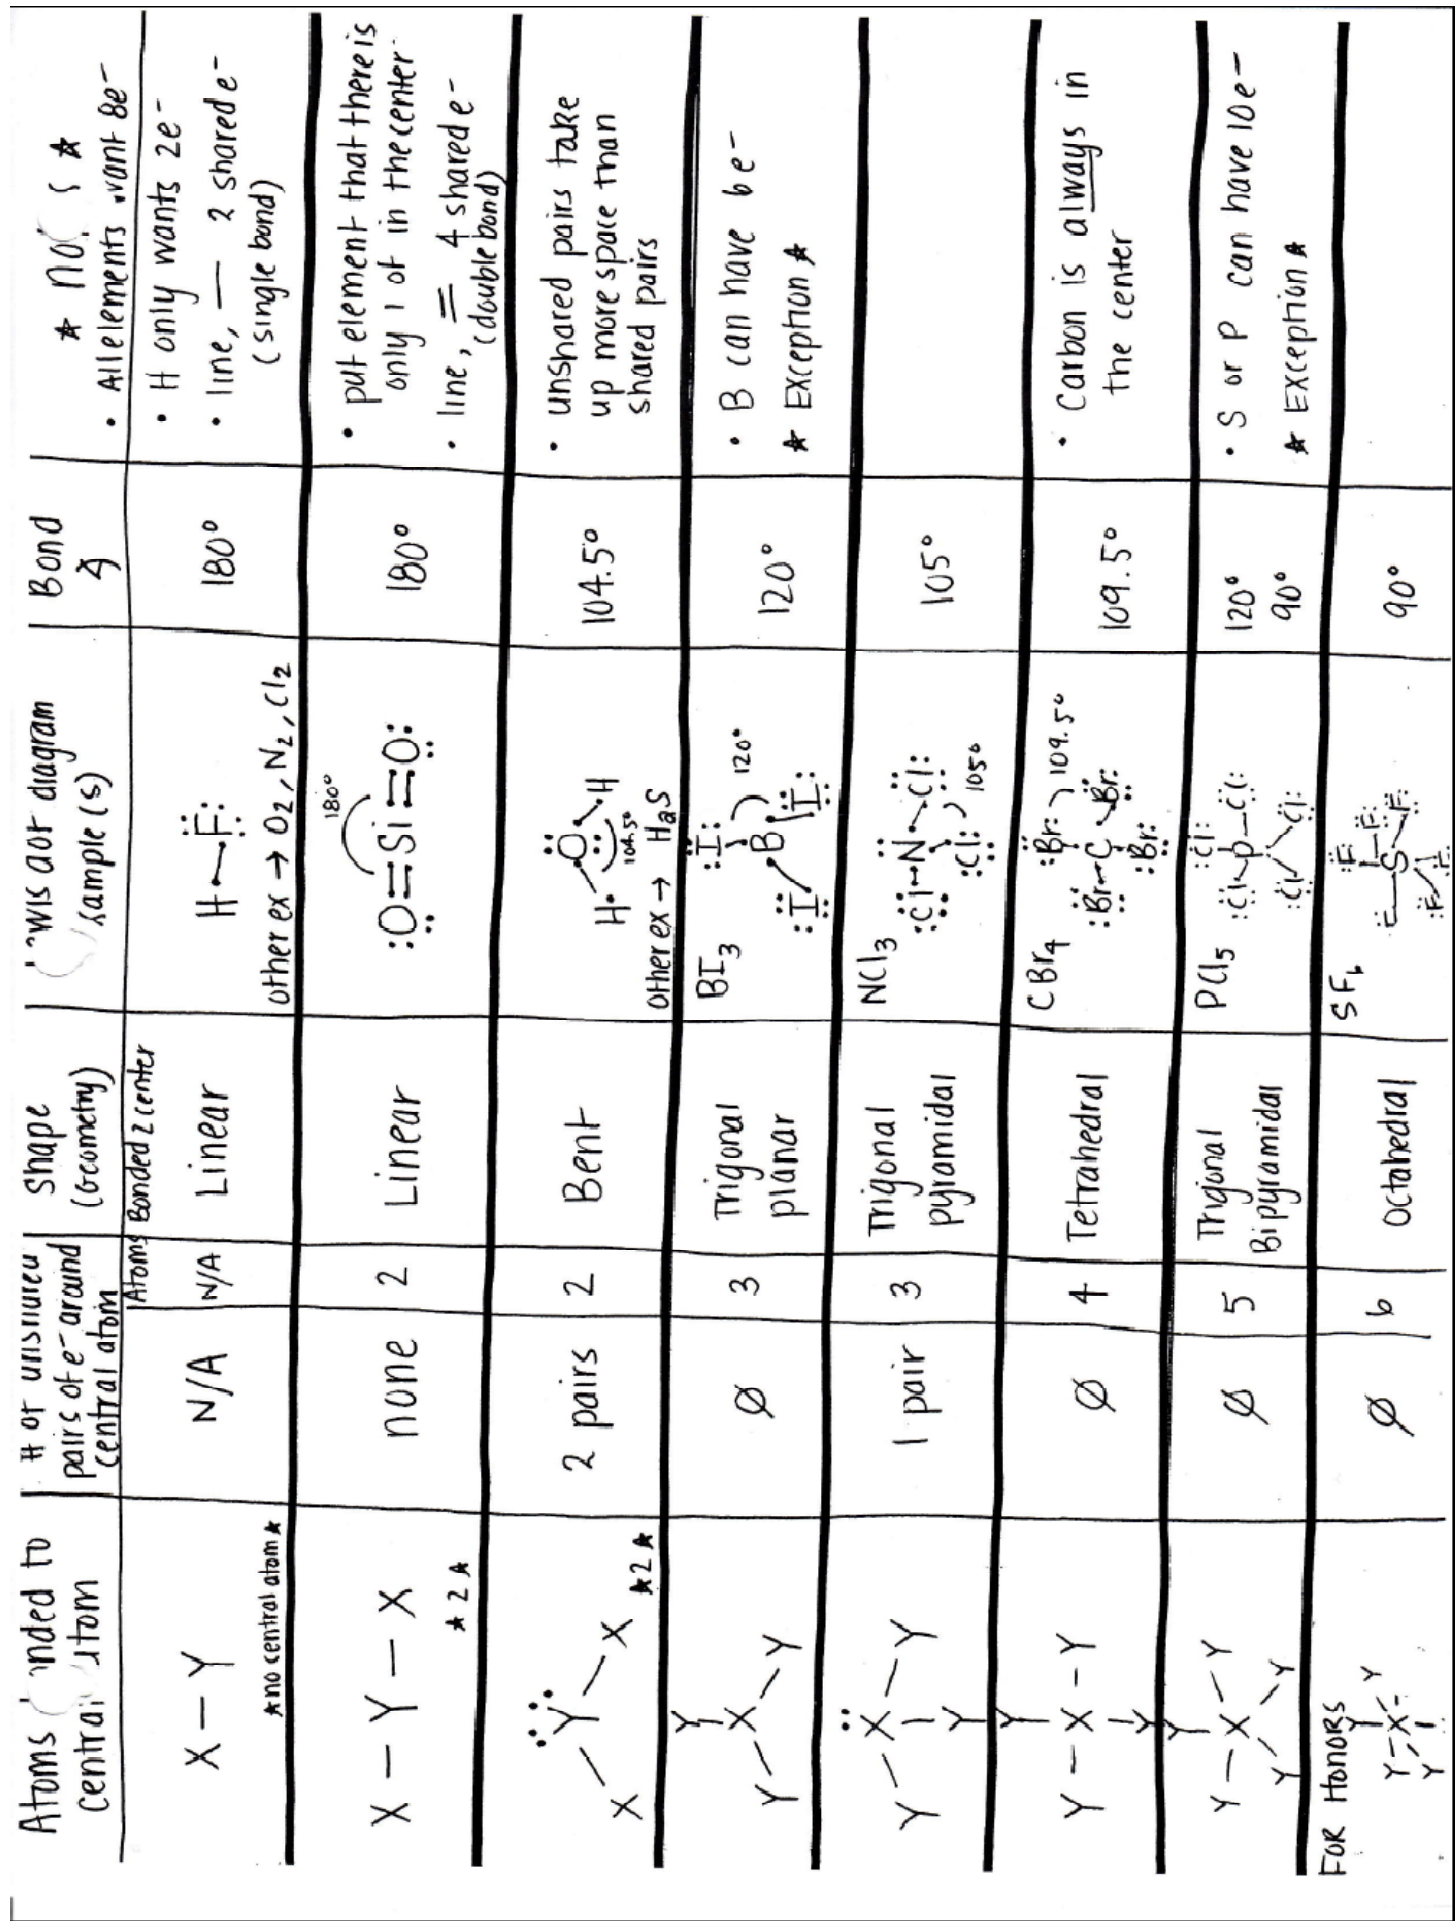 Atoms nded to
central atom
# of unshared
pairs of e⁻ around
central atom
Shape
(Geometry)
wis dot diagram
xample (s)
Bond
∠
★ ★
• All elements want 8e⁻
Atoms Bonded 2 center
X — Y
★no central atom★
N/A
N/A
Linear
H — F:
other ex → O₂, N₂, Cl₂
180°
• H only wants 2e⁻
• line, — 2 shared e⁻
(single bond)
X — Y — X
★ 2 ★
none
2
Linear
180°
:O=Si=O:
180°
• put element that there is
only 1 of in the center
• line, = 4 shared e⁻
(double bond)
Y
X X
★2★
2 pairs
2
Bent
O
H H
104.5°
other ex → H₂S
104.5°
• unshared pairs take
up more space than
shared pairs
Y
X
Y Y
Ø
3
Trigonal
planar
BI₃
:I:
B
:I I:
120°
120°
• B can have 6e⁻
★ Exception ★
X
Y Y
Y
1 pair
3
Trigonal
pyramidal
NCl₃
:Cl—N—Cl:
:Cl:
105°
105°
Y
Y — X — Y
Y
Ø
4
Tetrahedral
CBr₄
:Br:
:Br—C Br:
:Br:
109.5°
109.5°
• Carbon is always in
the center
Y
Y — X — Y
Y Y
Ø
5
Trigonal
Bipyramidal
PCl₅
:Cl:
:Cl—P—Cl:
:Cl Cl:
120°
90°
• S or P can have 10e⁻
★ Exception ★
FOR HONORS
Y
Y—X—Y
Y
Ø
6
Octahedral
SF₆
F
F
S
F
F
F
90°